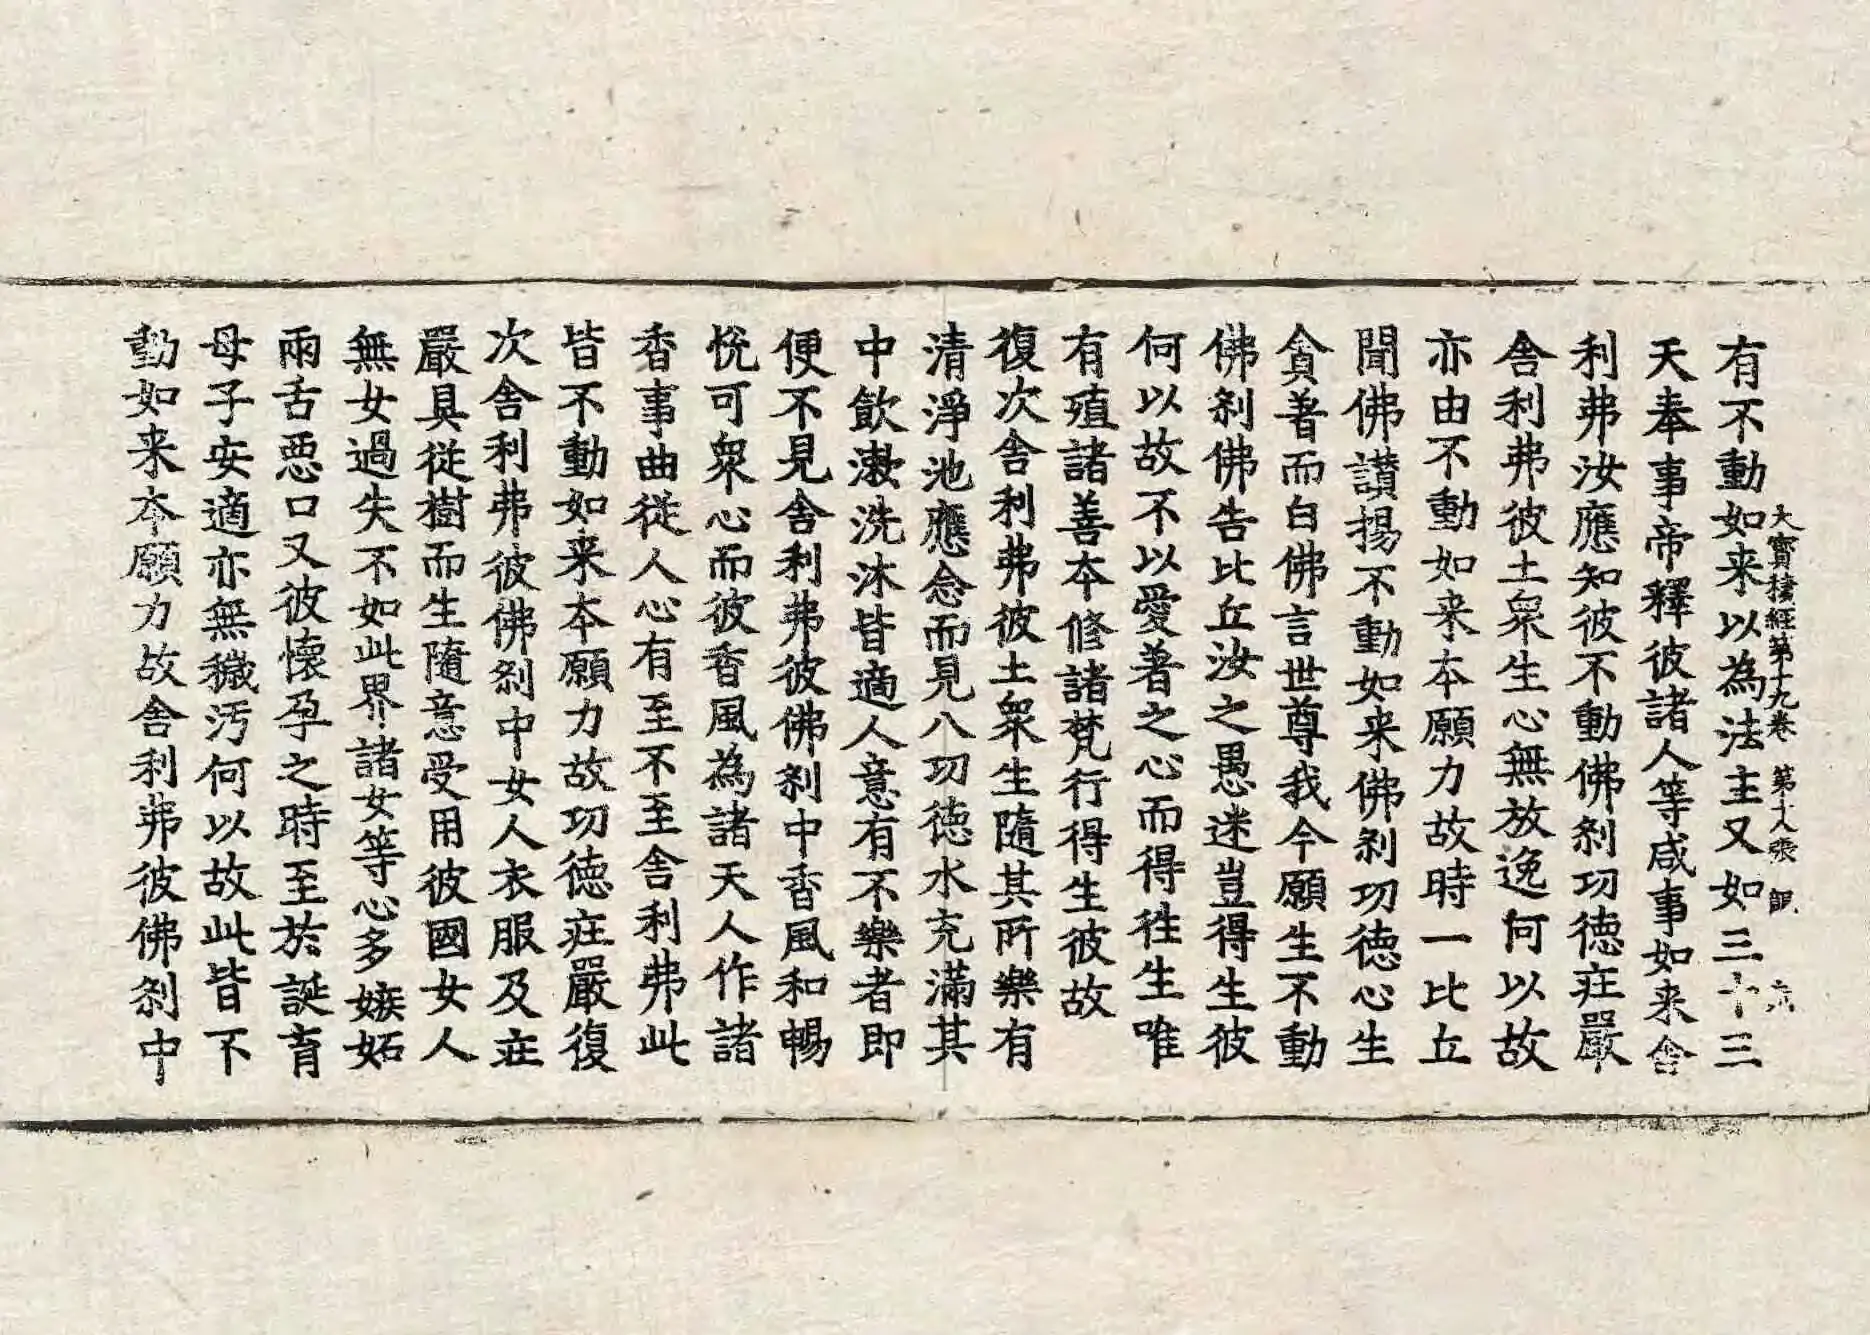 大寶積經第十九卷 第十八張
有不動如来以為法主又如三十三
天奉事帝釋彼諸人等咸事如来舍
利弗汝應知彼不動佛刹功德庄嚴
舍利弗彼土眾生心無放逸何以故
亦由不動如来本願力故時一比丘
聞佛讃揚不動如来佛刹功德心生
貪著而白佛言世尊我今願生不動
佛刹佛告比丘汝之愚迷豈得生彼
何以故不以愛著之心而得往生唯
有殖諸善夲修諸梵行得生彼故
復次舍利弗彼土眾生隨其所樂有
清淨池應念而見八功德水充滿其
中飲漱洗沐皆適人意有不樂者即
便不見舍利弗彼佛刹中香風和暢
悅可眾心而彼香風為諸天人作諸
香事曲從人心有至不至舍利弗此
皆不動如来夲願力故功德庄嚴復
次舍利弗彼佛刹中女人衣服及庄
嚴具從樹而生隨意受用彼國女人
無女過失不如此界諸女等心多嫉妬
兩舌惡口又彼懷孕之時至於誕育
母子安適亦無穢污何以故此皆不
動如来夲願力故舍利弗彼佛刹中